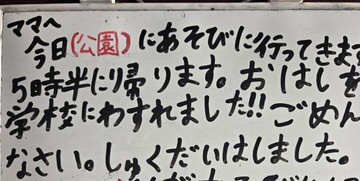 ママへ
今日(公園)にあそびに行ってきます
5時半に帰ります。おはしを
学校にわすれました!!ごめん
なさい。しゅくだいはしました。